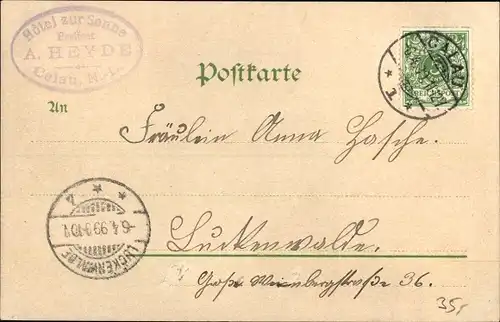 Hôtel zur Sonne
A. HEYDE
Calau, N.-L.
CALAU
Postkarte
An
Fräulein Anna Hasche.
6.4.99.9-10V.
LUCKENWALDE
Luckenwalde.
Große Weinbergstraße 36.
35,-